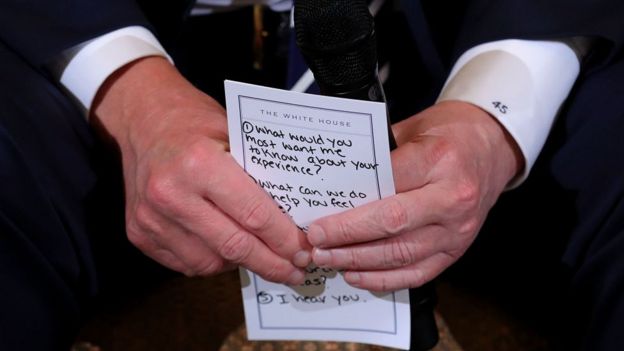 THE WHITE HOUSE
① What would you
most want me
to know about your
experience?
What can we do
help you feel
?
as?
⑤ I hear you.
45